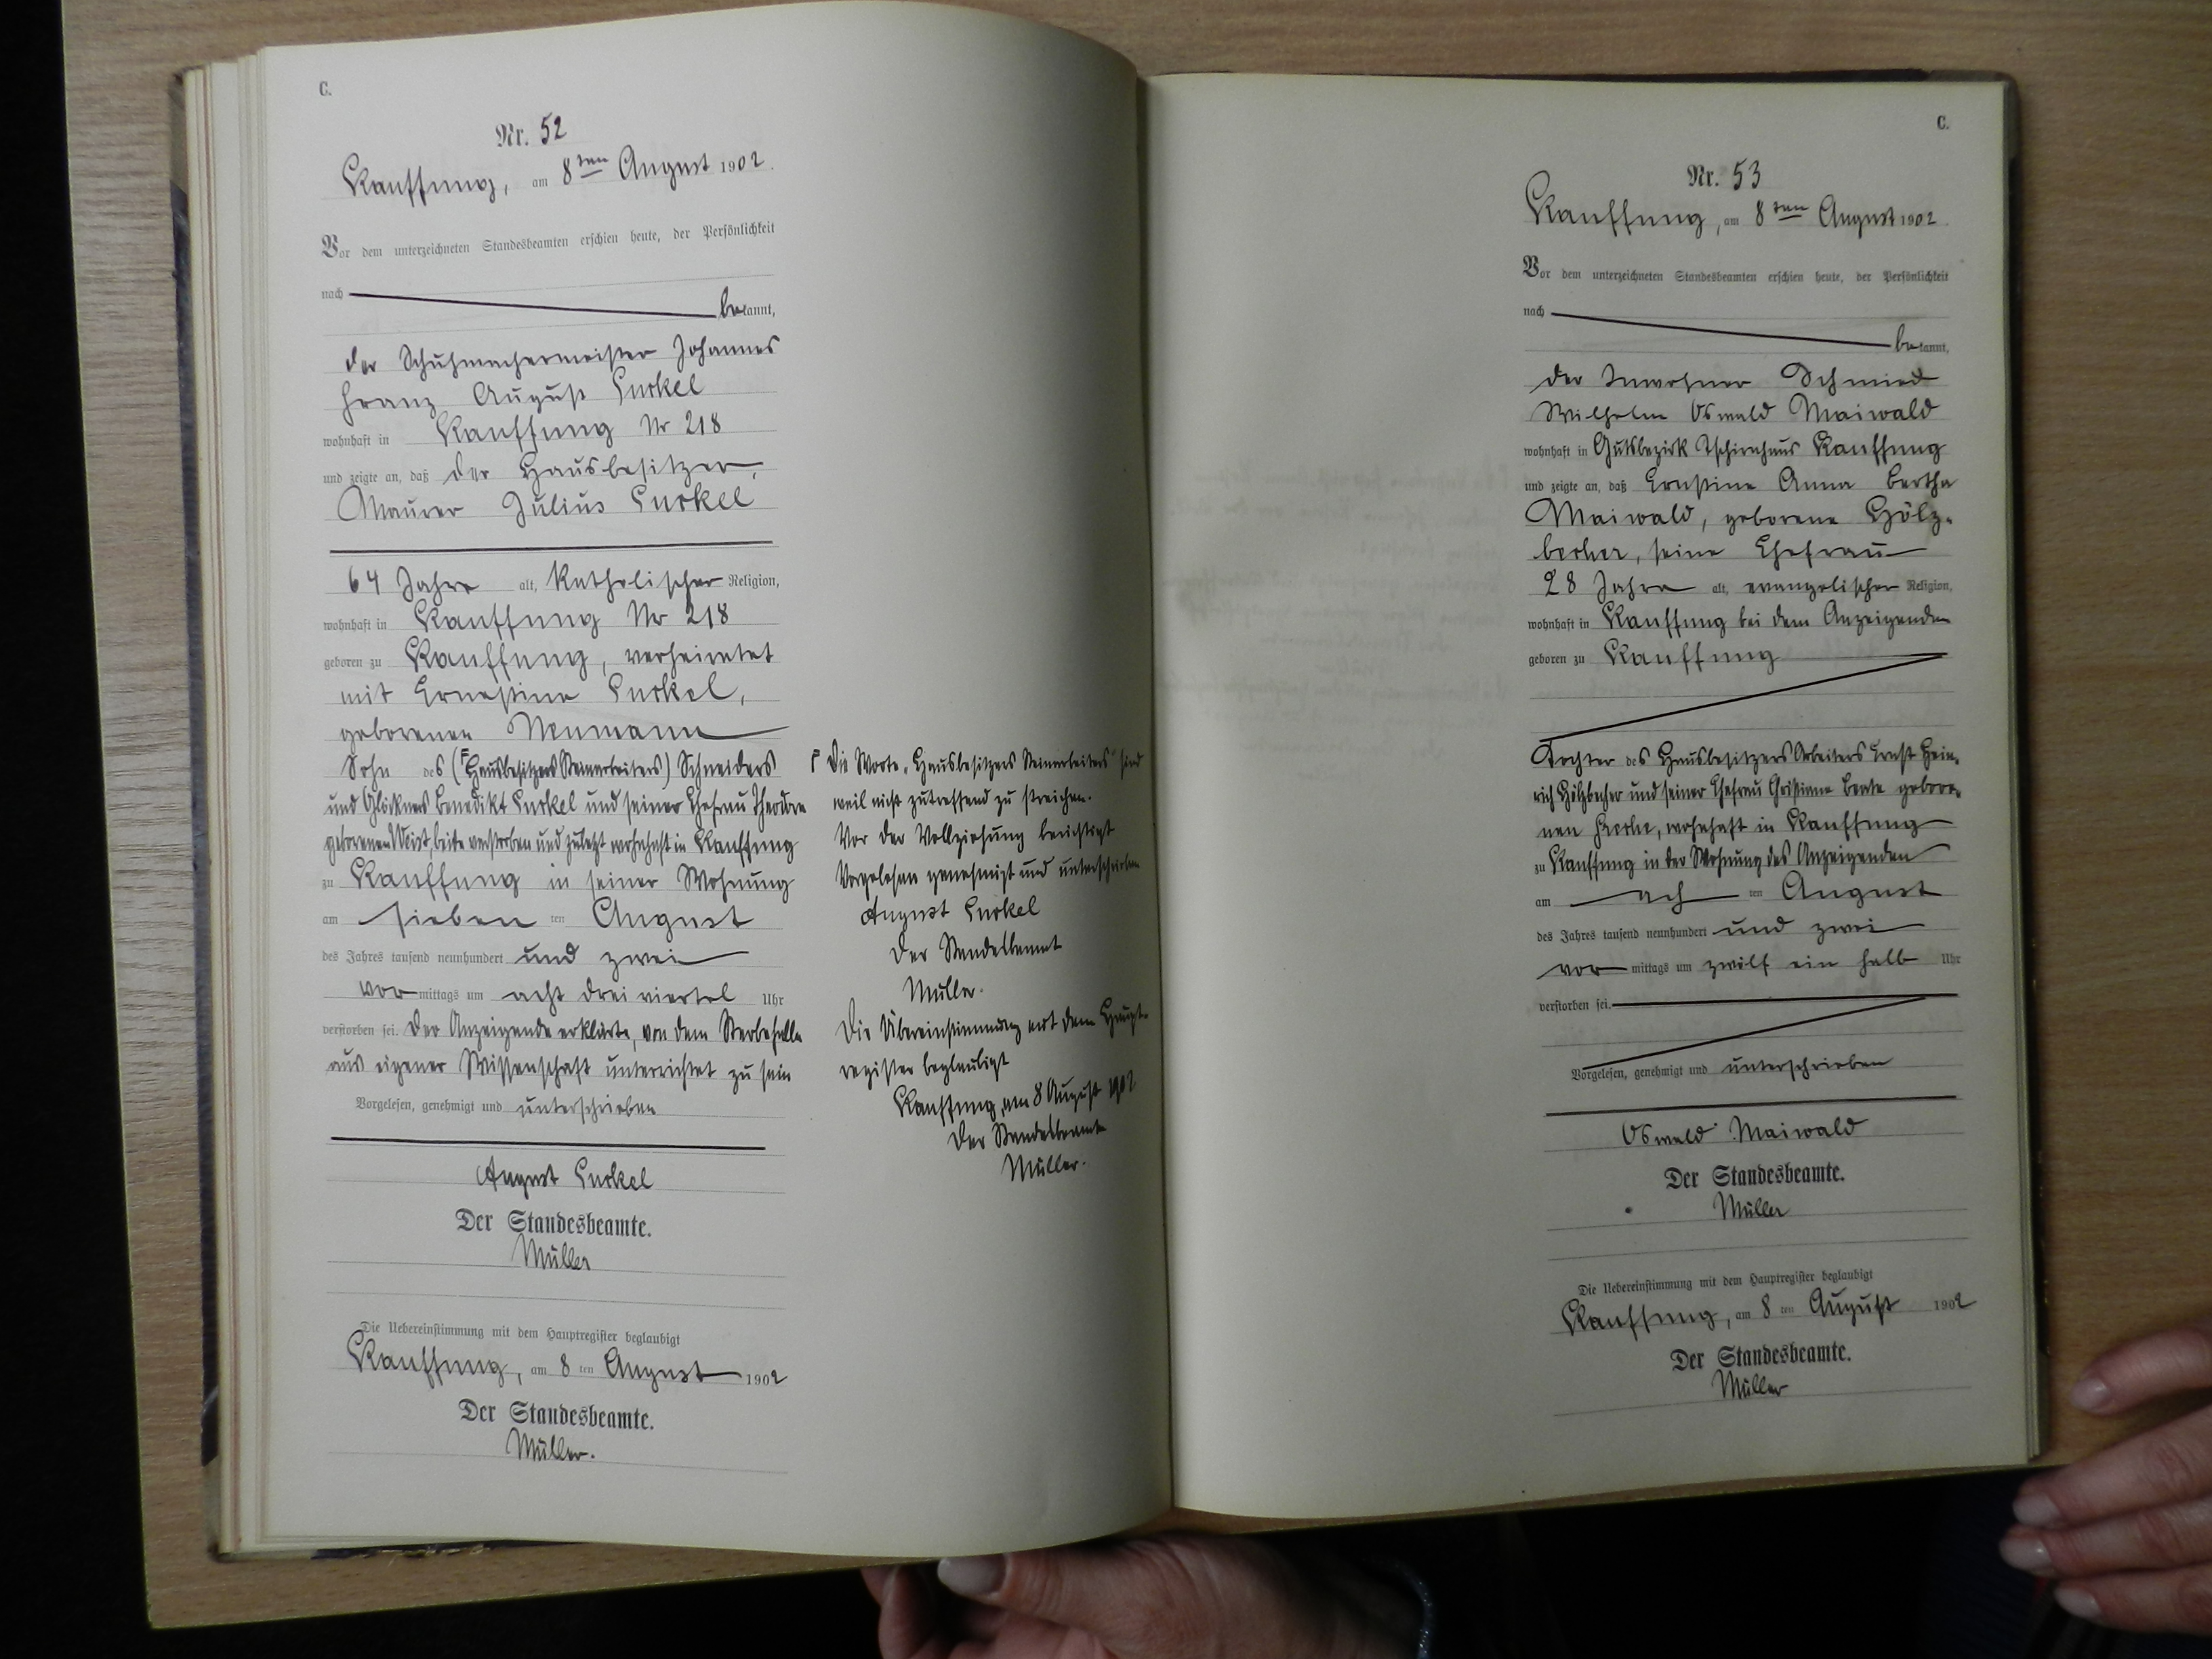 C.
Nr. 52
Kauffung, am 8ten August 1902.
Vor dem unterzeichneten Standesbeamten erschien heute, der Persönlichkeit
nach
bekannt,
der Schuhmachermeister Johannes
Franz August
wohnhaft in Kauffung Nr 218
und zeigte an, daß der Hausbesitzer,
Maurer Julius
64 Jahre alt, katholischer Religion,
wohnhaft in Kauffung Nr 218
geboren zu Kauffung, verheiratet
mit Ernestine
geborenen Neumann
Sohn des (Hausbesitzers Steinarbeiters) Schneiders
und Glöckners Benedikt und seiner Ehefrau
geborenen beide verstorben und zuletzt wohnhaft in Kauffung
zu Kauffung in seiner Wohnung
am sieben ten August
des Jahres tausend neunhundert und zwei
vor mittags um acht drei viertel Uhr
verstorben sei. Der Anzeigende erklärte, von dem Sterbefalle
aus eigener Wissenschaft unterrichtet zu sein
Vorgelesen, genehmigt und unterschrieben
August
Der Standesbeamte.
Müller
Die Uebereinstimmung mit dem Hauptregister beglaubigt
Kauffung, am 8 ten August 1902
Der Standesbeamte.
Müller.
Die Worte „Hausbesitzers Steinarbeiters" sind
weil nicht zutreffend zu streichen.
Vor der Vollziehung berichtigt
Vorgelesen genehmigt und unterschrieben
August
Der Standesbeamt
Müller.
Die Übereinstimmung mit dem Haupt-
register beglaubigt
Kauffung, am 8 August 1902
Der Standesbeamte
Müller.
C.
Nr. 53
Kauffung, am 8ten August 1902.
Vor dem unterzeichneten Standesbeamten erschien heute, der Persönlichkeit
nach
bekannt,
der Inwohner Schmied
Wilhelm Oswald Maiwald
wohnhaft in Gutsbezirk Tschirnhaus Kauffung
und zeigte an, daß Ernstine Anna Bertha
Maiwald, geborene Hölz-
becher, seine Ehefrau
28 Jahre alt, evangelischer Religion,
wohnhaft in Kauffung bei dem Anzeigenden
geboren zu Kauffung
Tochter des Hausbesitzers Arbeiters Ernst Hein-
rich Hölzbecher und seiner Ehefrau Christiane Beate gebore-
nen wohnhaft in Kauffung
zu Kauffung in der Wohnung des Anzeigenden
am ach ten August
des Jahres tausend neunhundert und zwei
vor mittags um zwölf ein halb Uhr
verstorben sei.
Vorgelesen, genehmigt und unterschrieben
Oswald Maiwald
Der Standesbeamte.
Müller
Die Uebereinstimmung mit dem Hauptregister beglaubigt
Kauffung, am 8 ten August 1902
Der Standesbeamte.
Müller